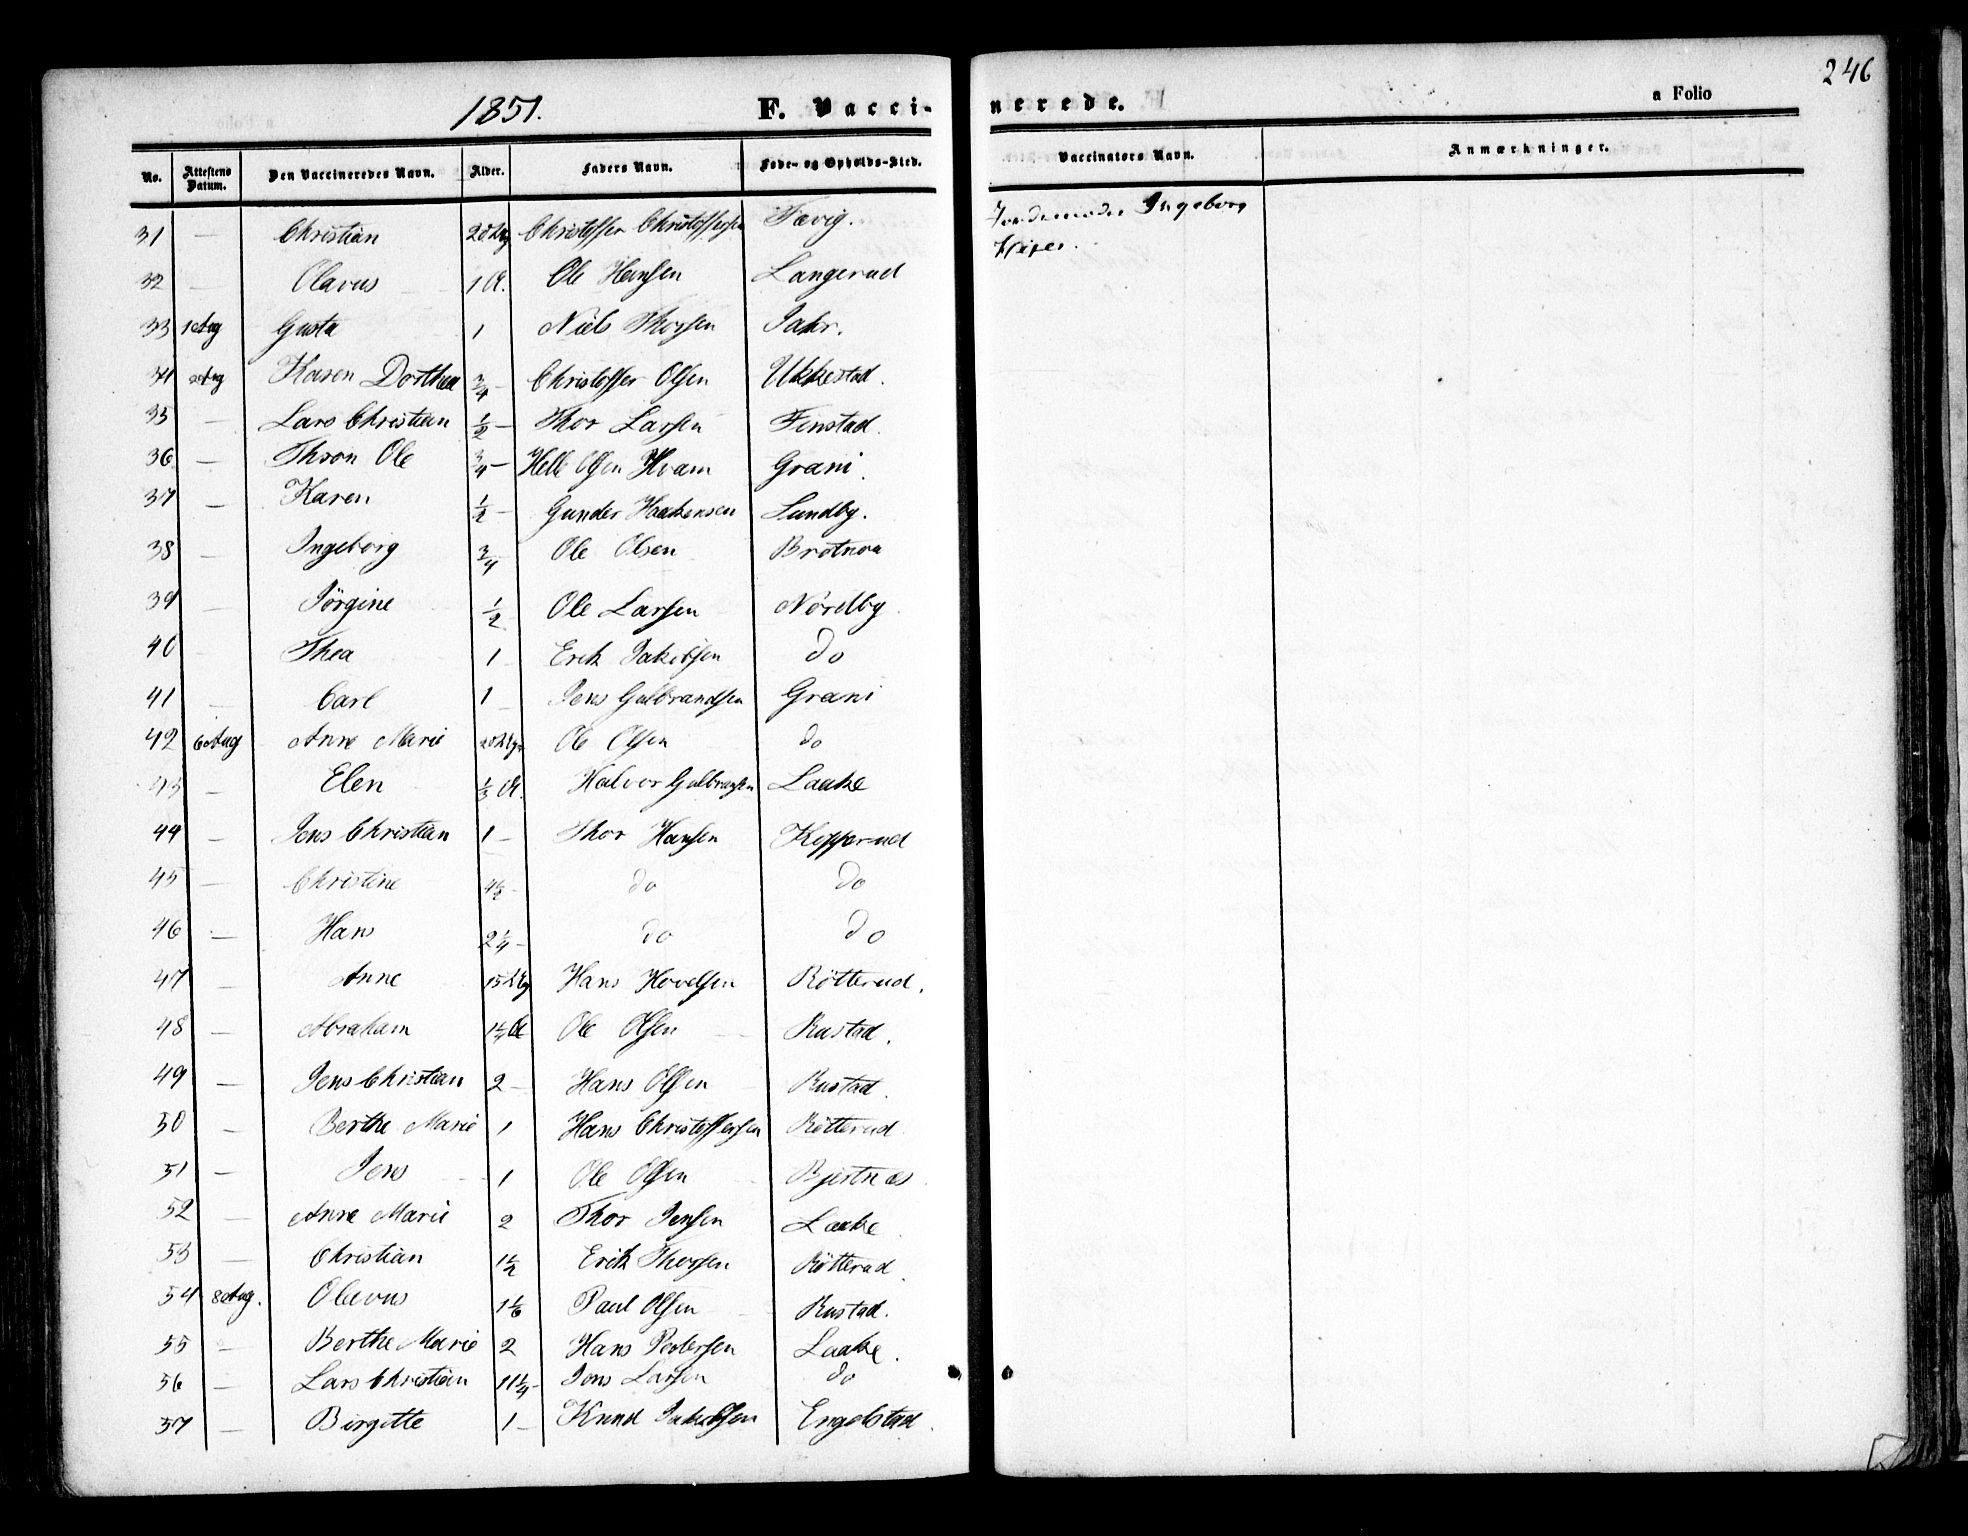 246
1851.
F. Vaccinerede.
a Folio
No. Attestens Datum. Den Vaccineredes Navn. Alder. Faders Navn. Føde- og Opholds-Sted. Vaccinators Navn. Anmærkninger.
31 — Christian 20 Christoffer Christoffersen Fævig. Jordemoder Ingeborg
32 — Olavus 1 A. Ole Hansen Langerud
33 1 Aug Gusta 1 Niels Thorsen Jahr.
34 2 Aug Karen Dorthea 3/4 — Christoffer Olsen Ukkestad.
35 — Lars Christian 1/2 — Thor Larsen Finstad.
36 — Thron Ole 3/4 — Helle Olsen Hvam Grani.
37 — Karen 1/2 — Gunder Haakensen Lundby.
38 — Ingeborg 3/4 Ole Olsen Brotnou
39 — Jörgine 1/2 Ole Larsen Nordby.
40 Thea 1 Erik Jakobsen do
41 — Carl 1 Jens Gulbrandsen Grani
42 6 Aug Anne Marie 20 Ole Olsen do
43 — Elen 1/3 A. Halvor Gulbransen Laake
44 — Jens Christian 1 — Thor Hansen Kopperud
45 — Christine 4 1/2 — do do
46 — Hans 2 1/4 — do do
47 — Anne 15 Hans Hovelsen Rötterud.
48 — Abraham 1 1/4 A Ole Olsen Rustad.
49 — Jens Christian 2 — Hans Olsen Rustad.
50 — Berthe Marie 1 Hans Christoffersen Rötterud
51 — Jens 1 Ole Olsen Bjertnæs
52 — Anne Marie 2 Thor Jensen Laake
53 — Christian 1 1/2 Erik Thorsen Rötterud.
54 8 Aug. Olavus 1 1/6 Paul Olsen Rustad.
55 — Berthe Marie 2 Hans Pedersen Laake.
56 — Lars Christian 11 1/4 — Jens Larsen do
57 — Birgitte 1 — Knud Jakobsen Engelstad.